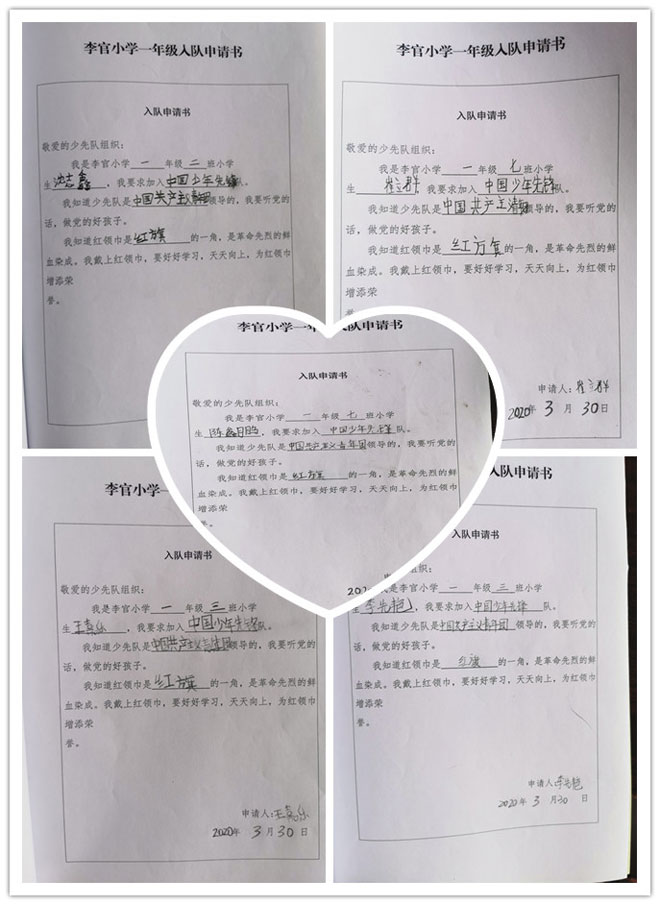 李官小学一年级入队申请书
入队申请书
敬爱的少先队组织:
我是李官小学一年级二班小学
生沈志鑫,我要求加入中国少年先锋队。
我知道少先队是中国共产主义青年团领导的,我要听党的
话,做党的好孩子。
我知道红领巾是红旗的一角,是革命先烈的鲜
血染成。我戴上红领巾,要好好学习,天天向上,为红领巾
增添荣
誉。
李官小学一年级入队申请书
入队申请书
敬爱的少先队组织:
我是李官小学一年级七班小学
生崔立群 我要求加入中国少年先锋队。
我知道少先队是中国共产主义青年团领导的,我要听党的
话,做党的好孩子。
我知道红领巾是红方旗的一角,是革命先烈的鲜
血染成。我戴上红领巾,要好好学习,天天向上,为红领巾
增添荣
申请人:崔立群
2020年3月30日
李官小学一年级入队申请书
入队申请书
敬爱的少先队组织:
我是李官小学一年级七班小学
生陈鑫,我要求加入中国少年先锋队。
我知道少先队是中国共产主义青年团领导的,我要听党的
话,做党的好孩子。
我知道红领巾是红方旗的一角,是革命先烈的鲜
血染成。我戴上红领巾,要好好学习,天天向上,为红领巾
增添荣
誉。
李官小学一
入队申请书
敬爱的少先队组织:
我是李官小学一年级三班小学
生王熹乐,我要求加入中国少年先锋队。
我知道少先队是中国共产主义青年团领导的,我要听党的
话,做党的好孩子。
我知道红领巾是红旗的一角,是革命先烈的鲜
血染成。我戴上红领巾,要好好学习,天天向上,为红领巾
增添荣
誉。
申请人:王熹乐
2020年3月30日
入队申请书
入队申请书
202
我是李官小学一年级三班小学
生李先艳,我要求加入中国少年先锋队。
我知道少先队是中国共产主义青年团领导的,我要听党的
话,做党的好孩子。
我知道红领巾是红旗的一角,是革命先烈的鲜
血染成。我戴上红领巾,要好好学习,天天向上,为红领巾
增添荣
誉。
申请人:李先艳
2020年3月30日